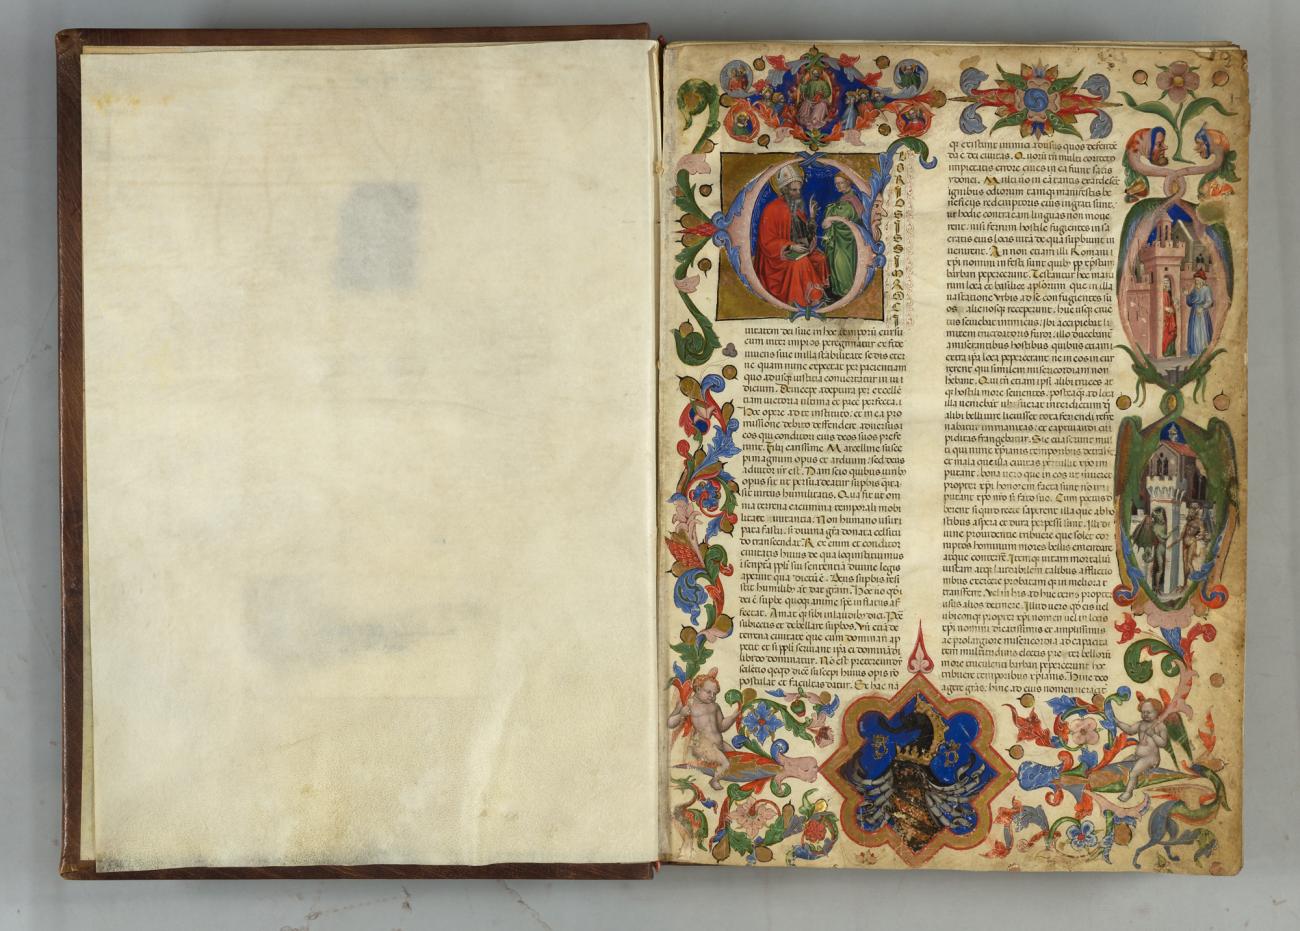 GLORIOSISSIMA CI
uitatem dei siue in hoc temporũ cursu
cum inter impios peregrinatur ex fide
uiuens siue in illa stabilitate sedis eter
ne quam nunc expectat per pacientiam
quo adusq̃ iusticia conuertatur in iu
dicium. Deinceps adeptura per excellẽ
ciam uictoria ultima et pace perfecta.
Hoc opere a te instituto. et in ea pro
missione debito deffendere aduersus
eos qui conditori eius deos suos prefe
runt. Fili carissime Marcelline susce
pi magnum opus et arduum. sed deus
adiutor nr̃ est. Nam scio quibus uirib
opus sit ut persuadeatur supbis q̃ta
sit uirtus humilitatis. Qua fit ut om
nia terrena cacumina temporali mobi
litate nutantia. Non humano usur
pata fastu. si diuina gr̃a donata celsitu
do transcendat. Rex enim et conditor
ciuitatis huius de qua loqui instituimus
i scriptẽ ppl̃i sui sententiã diuine legis
aperuit qua dictũ ẽ. Deus supbis resi
stit humilib aũt dat gratiã. Hoc uo q̃
dei ẽ supbe quoq̃ anime sp̃c inflatus af
fectat. Amat q̃ sibi in laudib dici. Pcẽ
subiectis et debellare supbos. Vñ etiã de
terrena ciuitate que cum dominari ap
petit et si ppl̃i seruiant ipa ei dominãdi
libido dominatur. Nõ est pretereundũ
silentio qcqd dicẽ suscepi huius opis rõ
postulat et facultas datur. Ex hac nã
q̃ existunt inimici aduersus quos defendẽ
da ẽ dei ciuitas. Quorũ tñ multi correcto
impietatis errore ciues in ea fiunt satis
ydonei. Multi uõ in eã tanis exardescẽt
ignibus odiorum tamq̃ manifestis be
neficijs redemptoris eius ingrati sunt.
ut hodie contra eam linguas non moue
rent. nisi ferrum hostile fugientes in sa
cratis eius locis uitã de qua supbiunt in
uenirent. An non etiam illi Romani
xp̃i nomini infesti sunt quib pp xp̃m
barbari pepercerunt. Testantur hec marti
rum loca et basilice aplõrum que in illa
uastatione Vrbis ad se confugientes su
os. alienosq̃ receperunt. huc usq̃ crue
tus seuiebat inimicus. Ibi accipiebat li
mitem trucidatoris furor. illo ducebant
amiserantibus hostibus quibus etiam
extra ipa loca pepercerant ne in eos incur
rerent qui similem misericordiam non
hebant. Qui tñ etiam ipsi alibi truces at
q̃ hostili more seuientes. postea q̃ ad loca
illa ueniebãt ubi fuerat interdictum q̃
alibi belli iure licuisset tota feriendi refre
nabatur immanitas. et captiuandi cu
piditas frangebatur. Sic euaserunt mul
ti qui nunc xp̃ianis temporibus detrahũt
et mala que illa ciuitas pertulit xp̃o im
putant. bona uero que in eos ut uiuerẽt
propter xp̃i honorem facta sunt nõ im
putant xp̃o nr̃o s; fato suo. Cum potius d
berent si quid recte saperent illa que ab ho
stibus aspera et dura perpessi sunt. Illi di
uine prouidentie tribuere que solet cor
ruptos hominum mores bellis emendare
atque conterere. Itemq̃ uitam mortaliũ
iustam atq̃ laudabilem talibus afflictio
nibus exercere probatam q̃ uel in meliora
transferre. Vel in his adhuc terris propter
usus alios detinere. Illud uero q̃ eis uel
ubicunq̃ propter xp̃i nomen uel in locis
xp̃i nomini dicatissimis et amplissimis
ac pro largiore misericordia ad capacita
tem multitudinis electis preter bellorũ
more truculenti barbari pepercerunt hoc
tribuere temporibus xp̃ianis. Hinc deo
agere gr̃as. hinc ad eius nomen ueracit